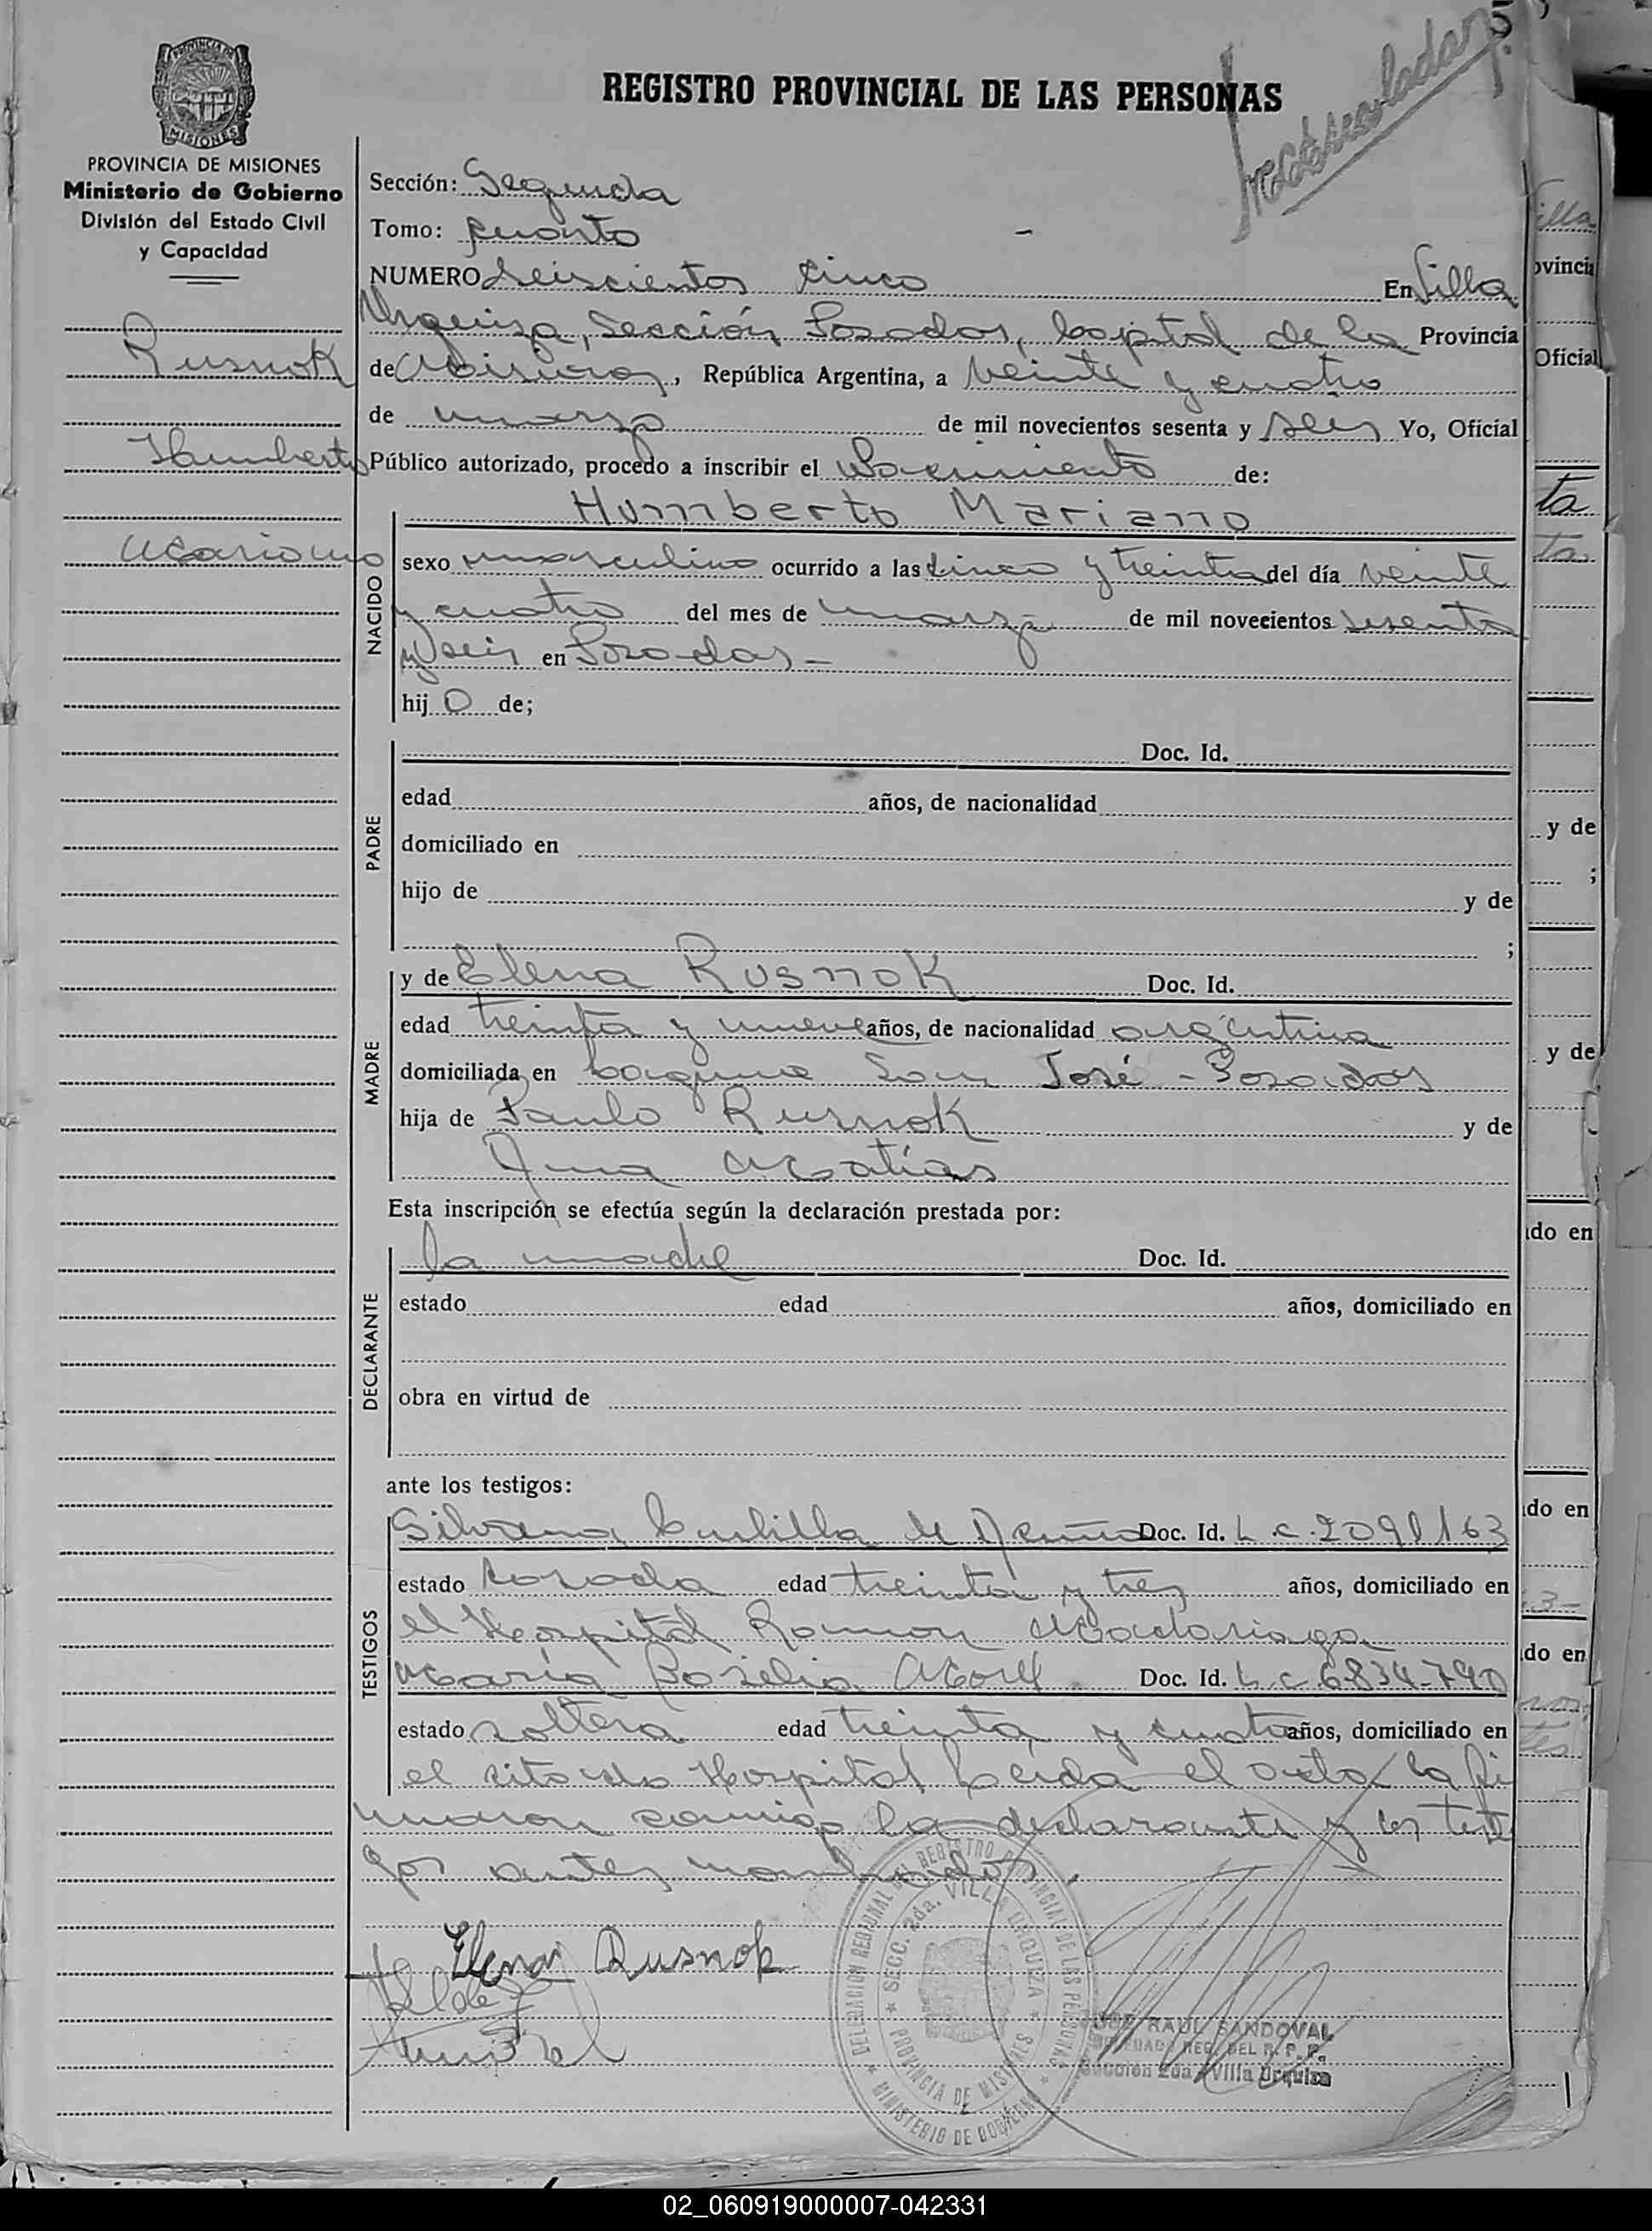 5
REGISTRO PROVINCIAL DE LAS PERSONAS
PROVINCIA DE MISIONES
MISIONES
PROVINCIA DE MISIONES
Ministerio de Gobierno
División del Estado Civil
y Capacidad
Rusnok
Humberto
Mariano
Sección: Segunda
Tomo: Cuarto
NUMERO Seiscientos Cinco En Villa
Urquiza, Sección Posadas, Capital de la Provincia
de Misiones, República Argentina, a veinte y cuatro
de marzo de mil novecientos sesenta y seis Yo, Oficial
Público autorizado, procedo a inscribir el Nacimiento de:
Humberto Mariano
NACIDO
sexo masculino ocurrido a las Cinco y treinta del día veinte
y cuatro del mes de marzo de mil novecientos sesenta
y seis en Posadas -
hij o de;
PADRE
Doc. Id.
edad años, de nacionalidad
domiciliado en
hijo de y de
;
MADRE
y de Elena Rusnok Doc. Id.
edad treinta y nueve años, de nacionalidad argentina
domiciliada en Laguna San José - Posadas
hija de Paulo Rusnok y de
Ana Matías
Esta inscripción se efectúa según la declaración prestada por:
DECLARANTE
la madre Doc. Id.
estado edad años, domiciliado en
obra en virtud de
ante los testigos:
TESTIGOS
Silvana de Doc. Id. L.C. 2091163
estado casada edad treinta y tres años, domiciliado en
el Hospital Ramon Madariaga
María Doc. Id. L.C 6834790
estado soltera edad treinta y cuatro años, domiciliado en
el citado Hospital Leida el acta la fir
maron conmigo la declarante y los testi
gos antes nombrados.
Elena Rusnok
DELEGACION REGIONAL DEL REGISTRO PROVINCIAL DE LAS PERSONAS
SECC. 2da. VILLA URQUIZA
PROVINCIA DE MISIONES
MINISTERIO DE GOBIERNO
RAUL SANDOVAL
REG. DEL R. P. P.
Sección 2da. Villa Urquiza
Villa
ovincia
Oficial
ta
ta
y de
;
y de
do en
do en
3-
do en
02_060919000007-042331